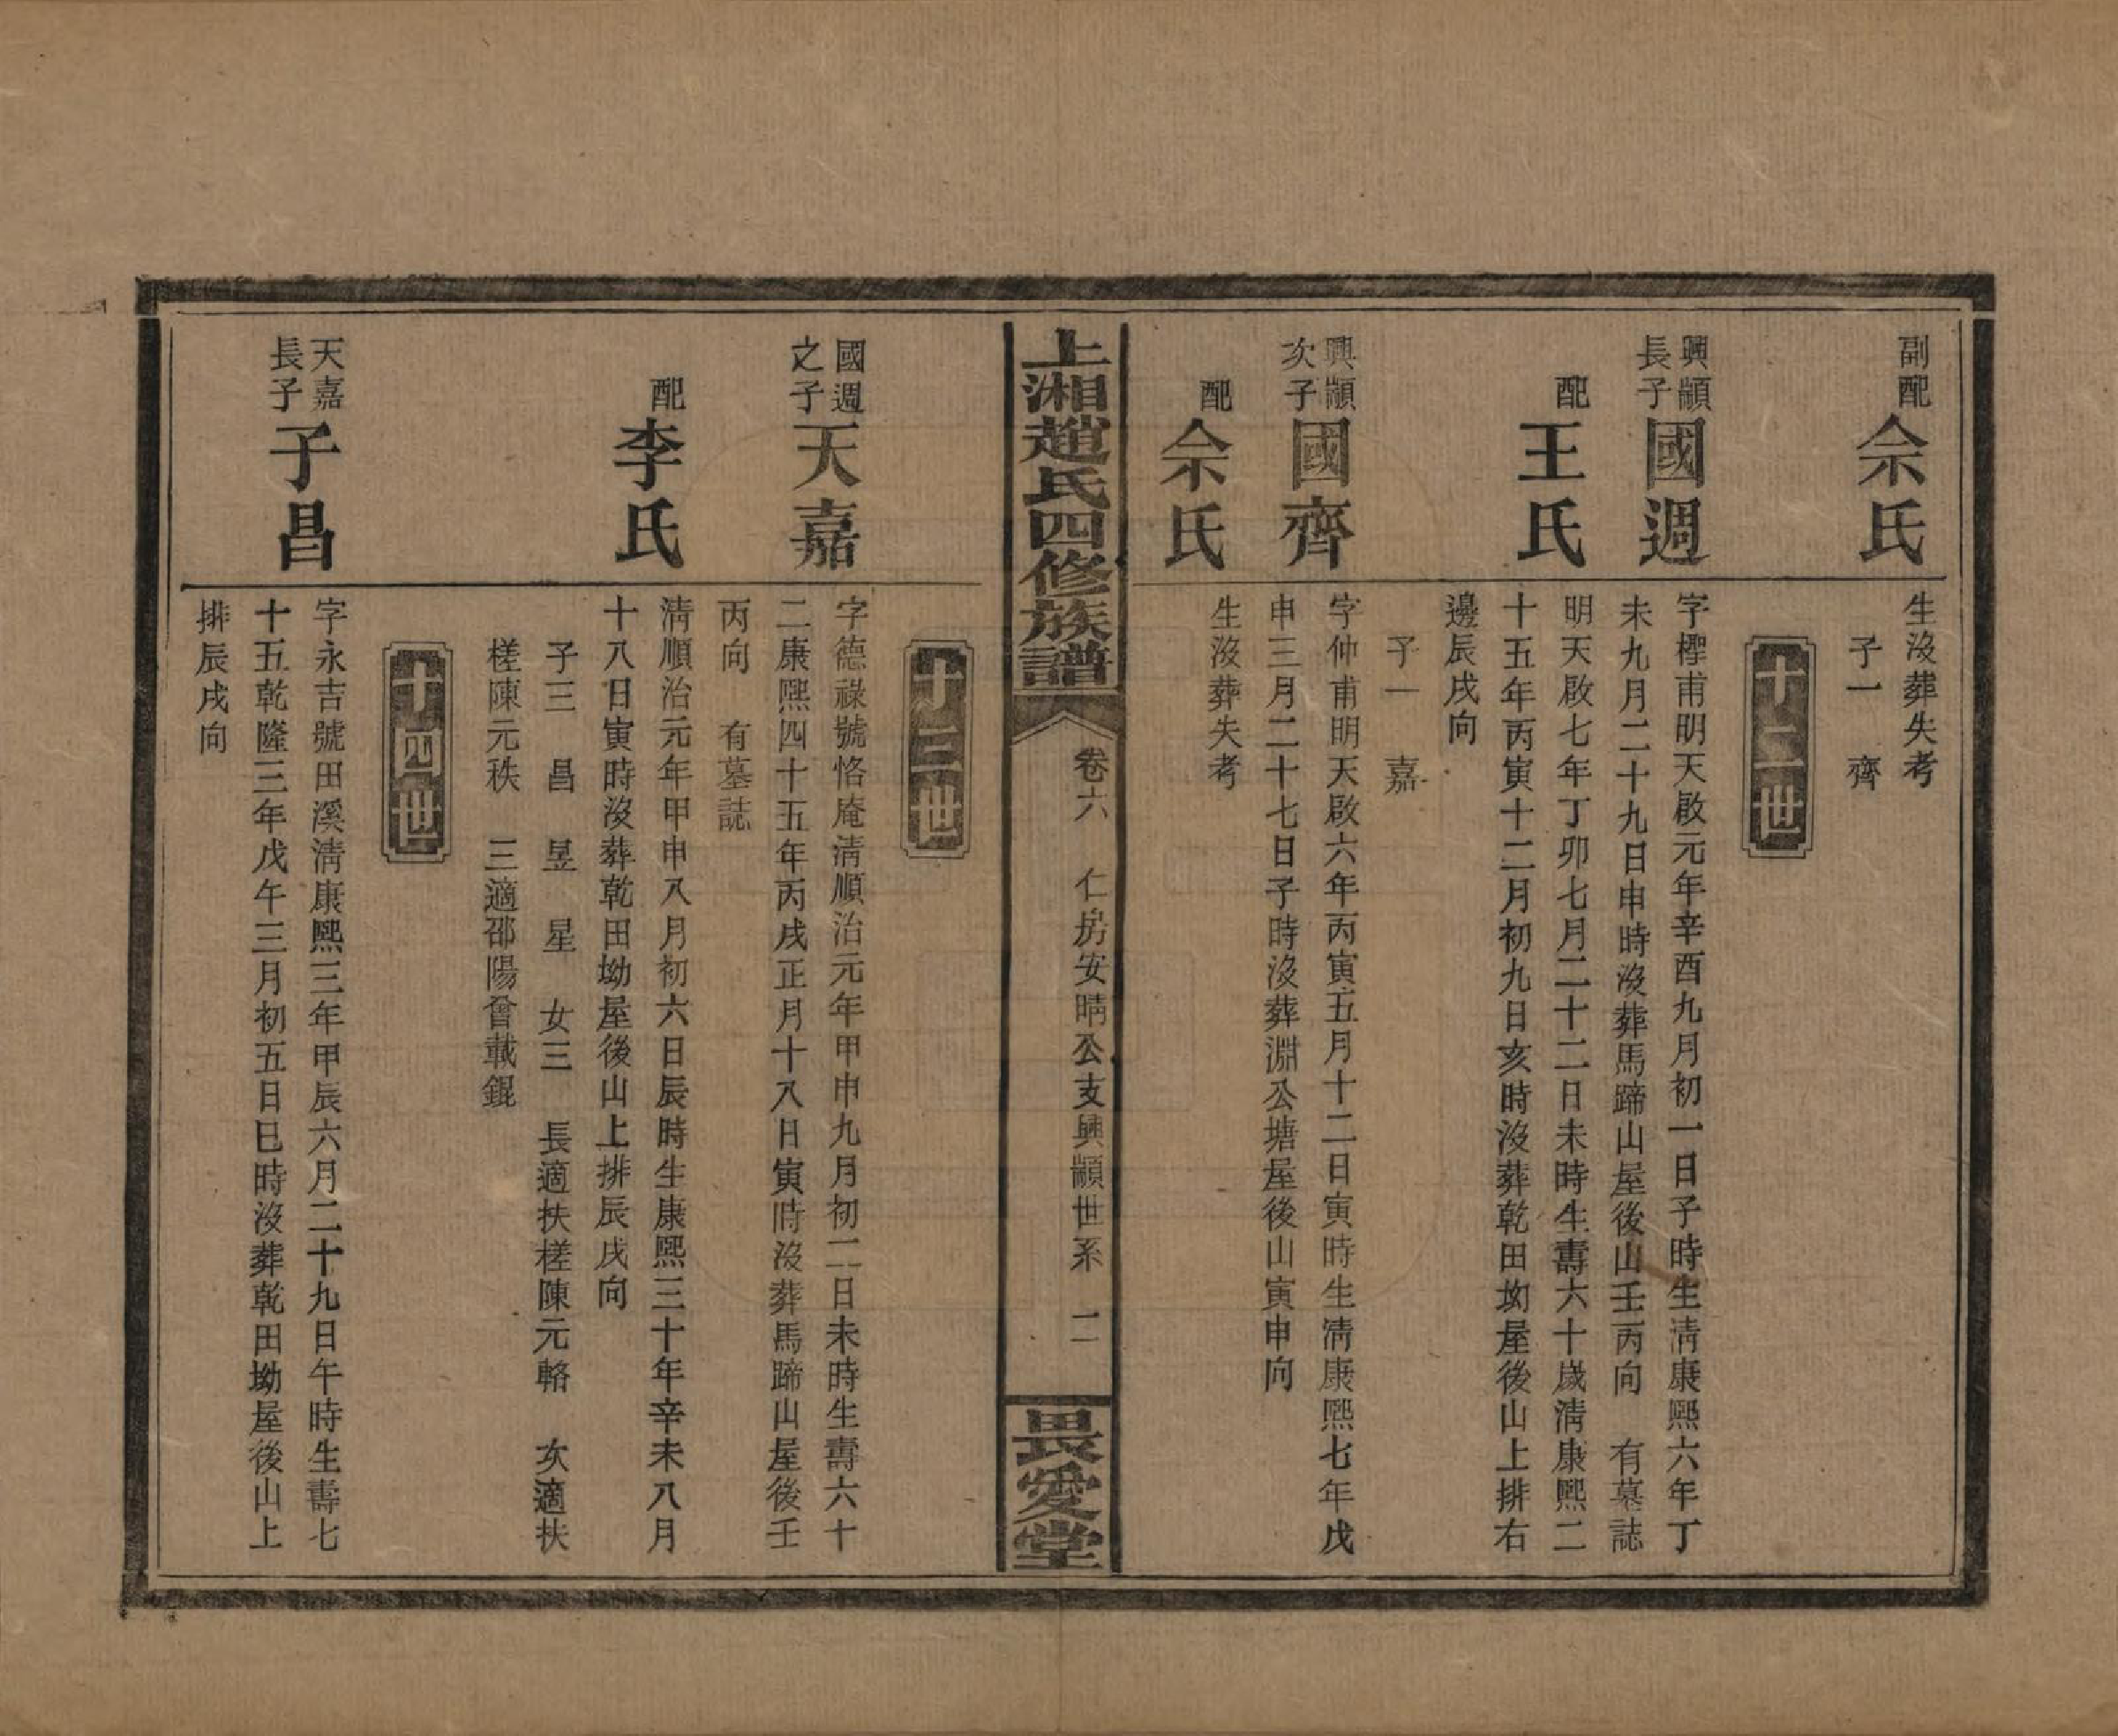 副配
佘氏
生沒葬失考
子一　齊
十二世
興顓
長子
國週
字檉甫明天啟元年辛酉九月初一日子時生淸康熙六年丁
未九月二十九日申時沒葬馬蹄山屋後山壬丙向　有墓誌
配
王氏
明天啟七年丁卯七月二十二日未時生壽六十歲淸康熙二
十五年丙寅十二月初九日亥時沒葬乾田坳屋後山上排右
邊辰戌向
子一　嘉
興顓
次子
國齊
字仲甫明天啟六年丙寅五月十二日寅時生淸康熙七年戊
申三月二十七日子時沒葬淵公塘屋後山寅申向
配
佘氏
生沒葬失考
上湘趙氏四修族譜
卷六　仁房安晴公支興顓世系　二
畏愛堂
十三世
國週
之子
天嘉
字德祿號恪庵淸順治元年甲申九月初二日未時生壽六十
二康熙四十五年丙戌正月十八日寅時沒葬馬蹄山屋後壬
丙向　有墓誌
配
李氏
淸順治元年甲申八月初六日辰時生康熙三十年辛未八月
十八日寅時沒葬乾田坳屋後山上排辰戌向
子三　昌　昱　星　女三　長適扶槎陳元輅　次適扶
槎陳元秩　三適邵陽曾載錕
十四世
天嘉
長子
子昌
字永吉號田溪淸康熙三年甲辰六月二十九日午時生壽七
十五乾隆三年戊午三月初五日巳時沒葬乾田坳屋後山上
排辰戌向